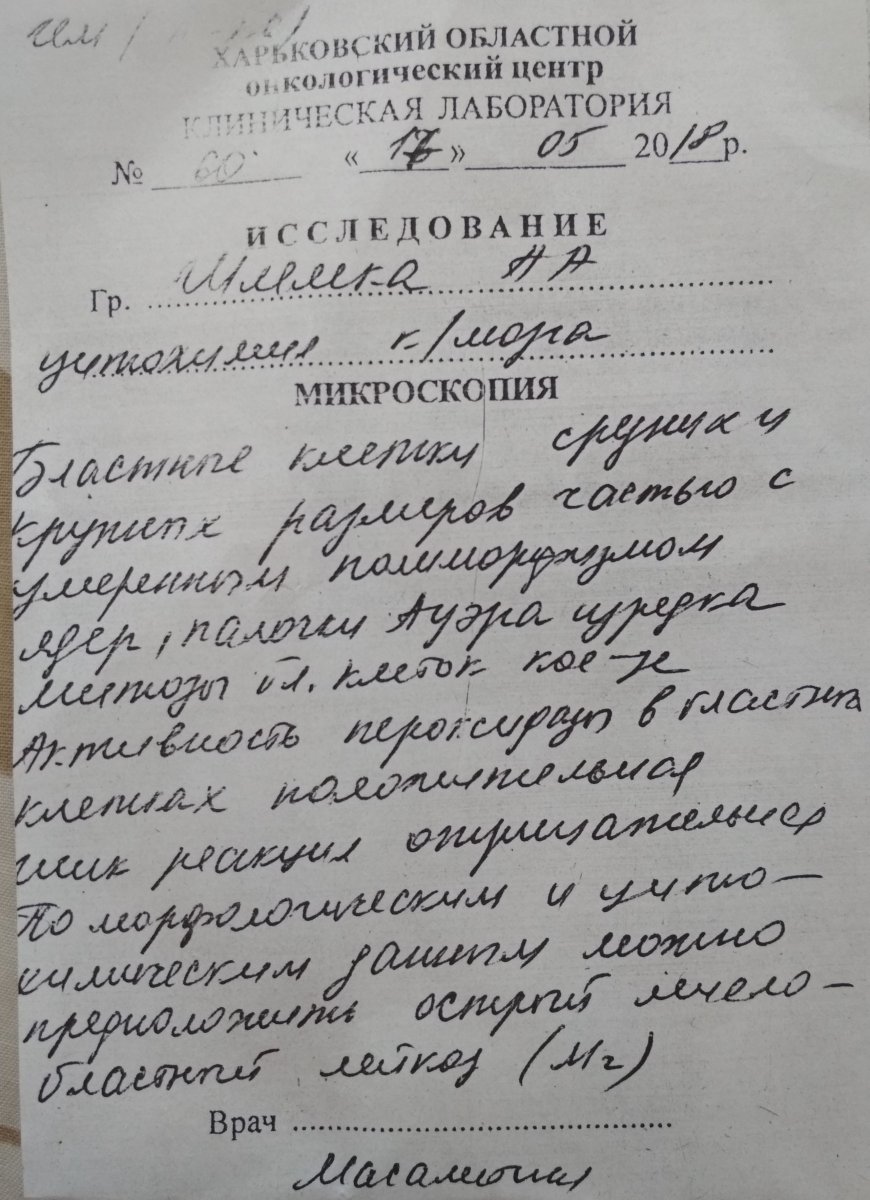 ХАРЬКОВСКИЙ ОБЛАСТНОЙ
онкологический центр
КЛИНИЧЕСКАЯ ЛАБОРАТОРИЯ
№ 60 « 17 » 05 2018 р.
ИССЛЕДОВАНИЕ
Гр. А А
цитохимия к/мозга
МИКРОСКОПИЯ
Бластные клетки средних и
крупных размеров частью с
умеренным полиморфизмом
ядер, палочки Ауэра изредка
митозы бл. клеток кое-где
Активность пероксидазы в бластных
клетках положительная
шик реакция отрицательная
По морфологическим и цито-
химическим данным можно
предположить острый миело-
бластный лейкоз (М2)
Врач